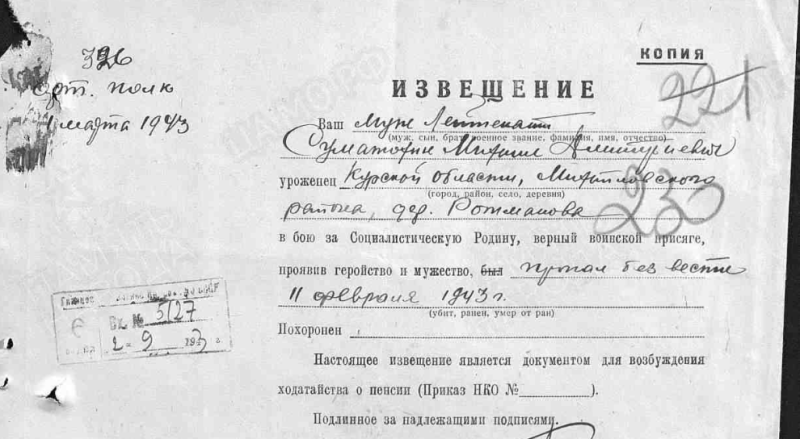 326
арт. полк
1 марта 1943
КОПИЯ
ИЗВЕЩЕНИЕ
221
Ваш муж Лейтенант
(муж, сын, брат, военное звание, фамилия, имя, отчество)
Михаил Дмитриевич
уроженец Курской области, Михайловского
(город, район, село, деревня)
района, дер. Рожманова
230
в бою за Социалистическую Родину, верный воинской присяге,
проявив геройство и мужество, был пропал без вести
11 февраля 1943 г.
(убит, ранен, умер от ран)
Похоронен
Вх. № 5127
2 - 9 1943 г.
Настоящее извещение является документом для возбуждения
ходатайства о пенсии (Приказ НКО № ).
Подлинное за надлежащими подписями.